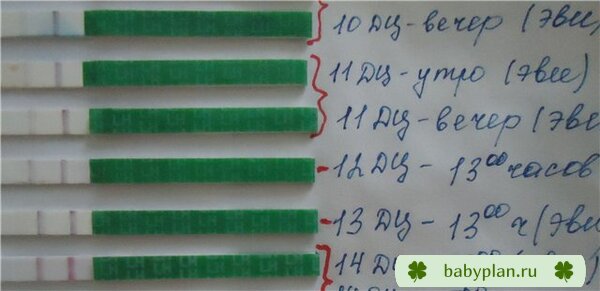 10 ДЦ - вечер (эви
11 ДЦ - утро (эви)
11 ДЦ - вечер (эви
12 ДЦ - 13⁰⁰ часов
13 ДЦ - 13⁰⁰ ч (эви
14 ДЦ
babyplan.ru